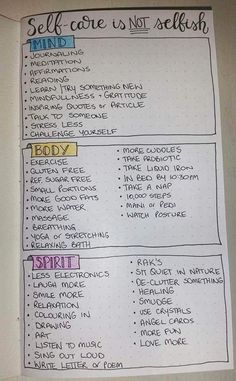 Self-care is NOT selfish
MIND
• JOURNALING
• MEDITATION
• AFFIRMATIONS
• READING
• LEARN / TRY SOMETHING NEW
• MINDFULLNESS + GRATITUDE
• INSPIRING QUOTES OR ARTICLE
• TALK TO SOMEONE
• STRESS LESS
• CHALLENGE YOURSELF
BODY
• EXERCISE
• GLUTEN FREE
• REF. SUGAR FREE
• SMALL PORTIONS
• MORE GOOD FATS
• MORE WATER
• MASSAGE
• BREATHING
• YOGA or STRETCHING
• RELAXING BATH
• MORE CUDDLES
• TAKE PROBIOTIC
• TAKE LIQUID IRON
• IN BED BY 10:30PM
• TAKE A NAP
• 10,000 STEPS
• MANI or PEDI
• WATCH POSTURE
SPIRIT
• LESS ELECTRONICS
• LAUGH MORE
• SMILE MORE
• RELAXATION
• COLOURING IN
• DRAWING
• ART
• LISTEN TO MUSIC
• SING OUT LOUD
• WRITE LETTER or POEM
• RAK's
• SIT QUIET IN NATURE
• DE-CLUTTER SOMETHING
• HEALING
• SMUDGE
• USE CRYSTALS
• ANGEL CARDS
• MORE FUN
• LOVE MORE